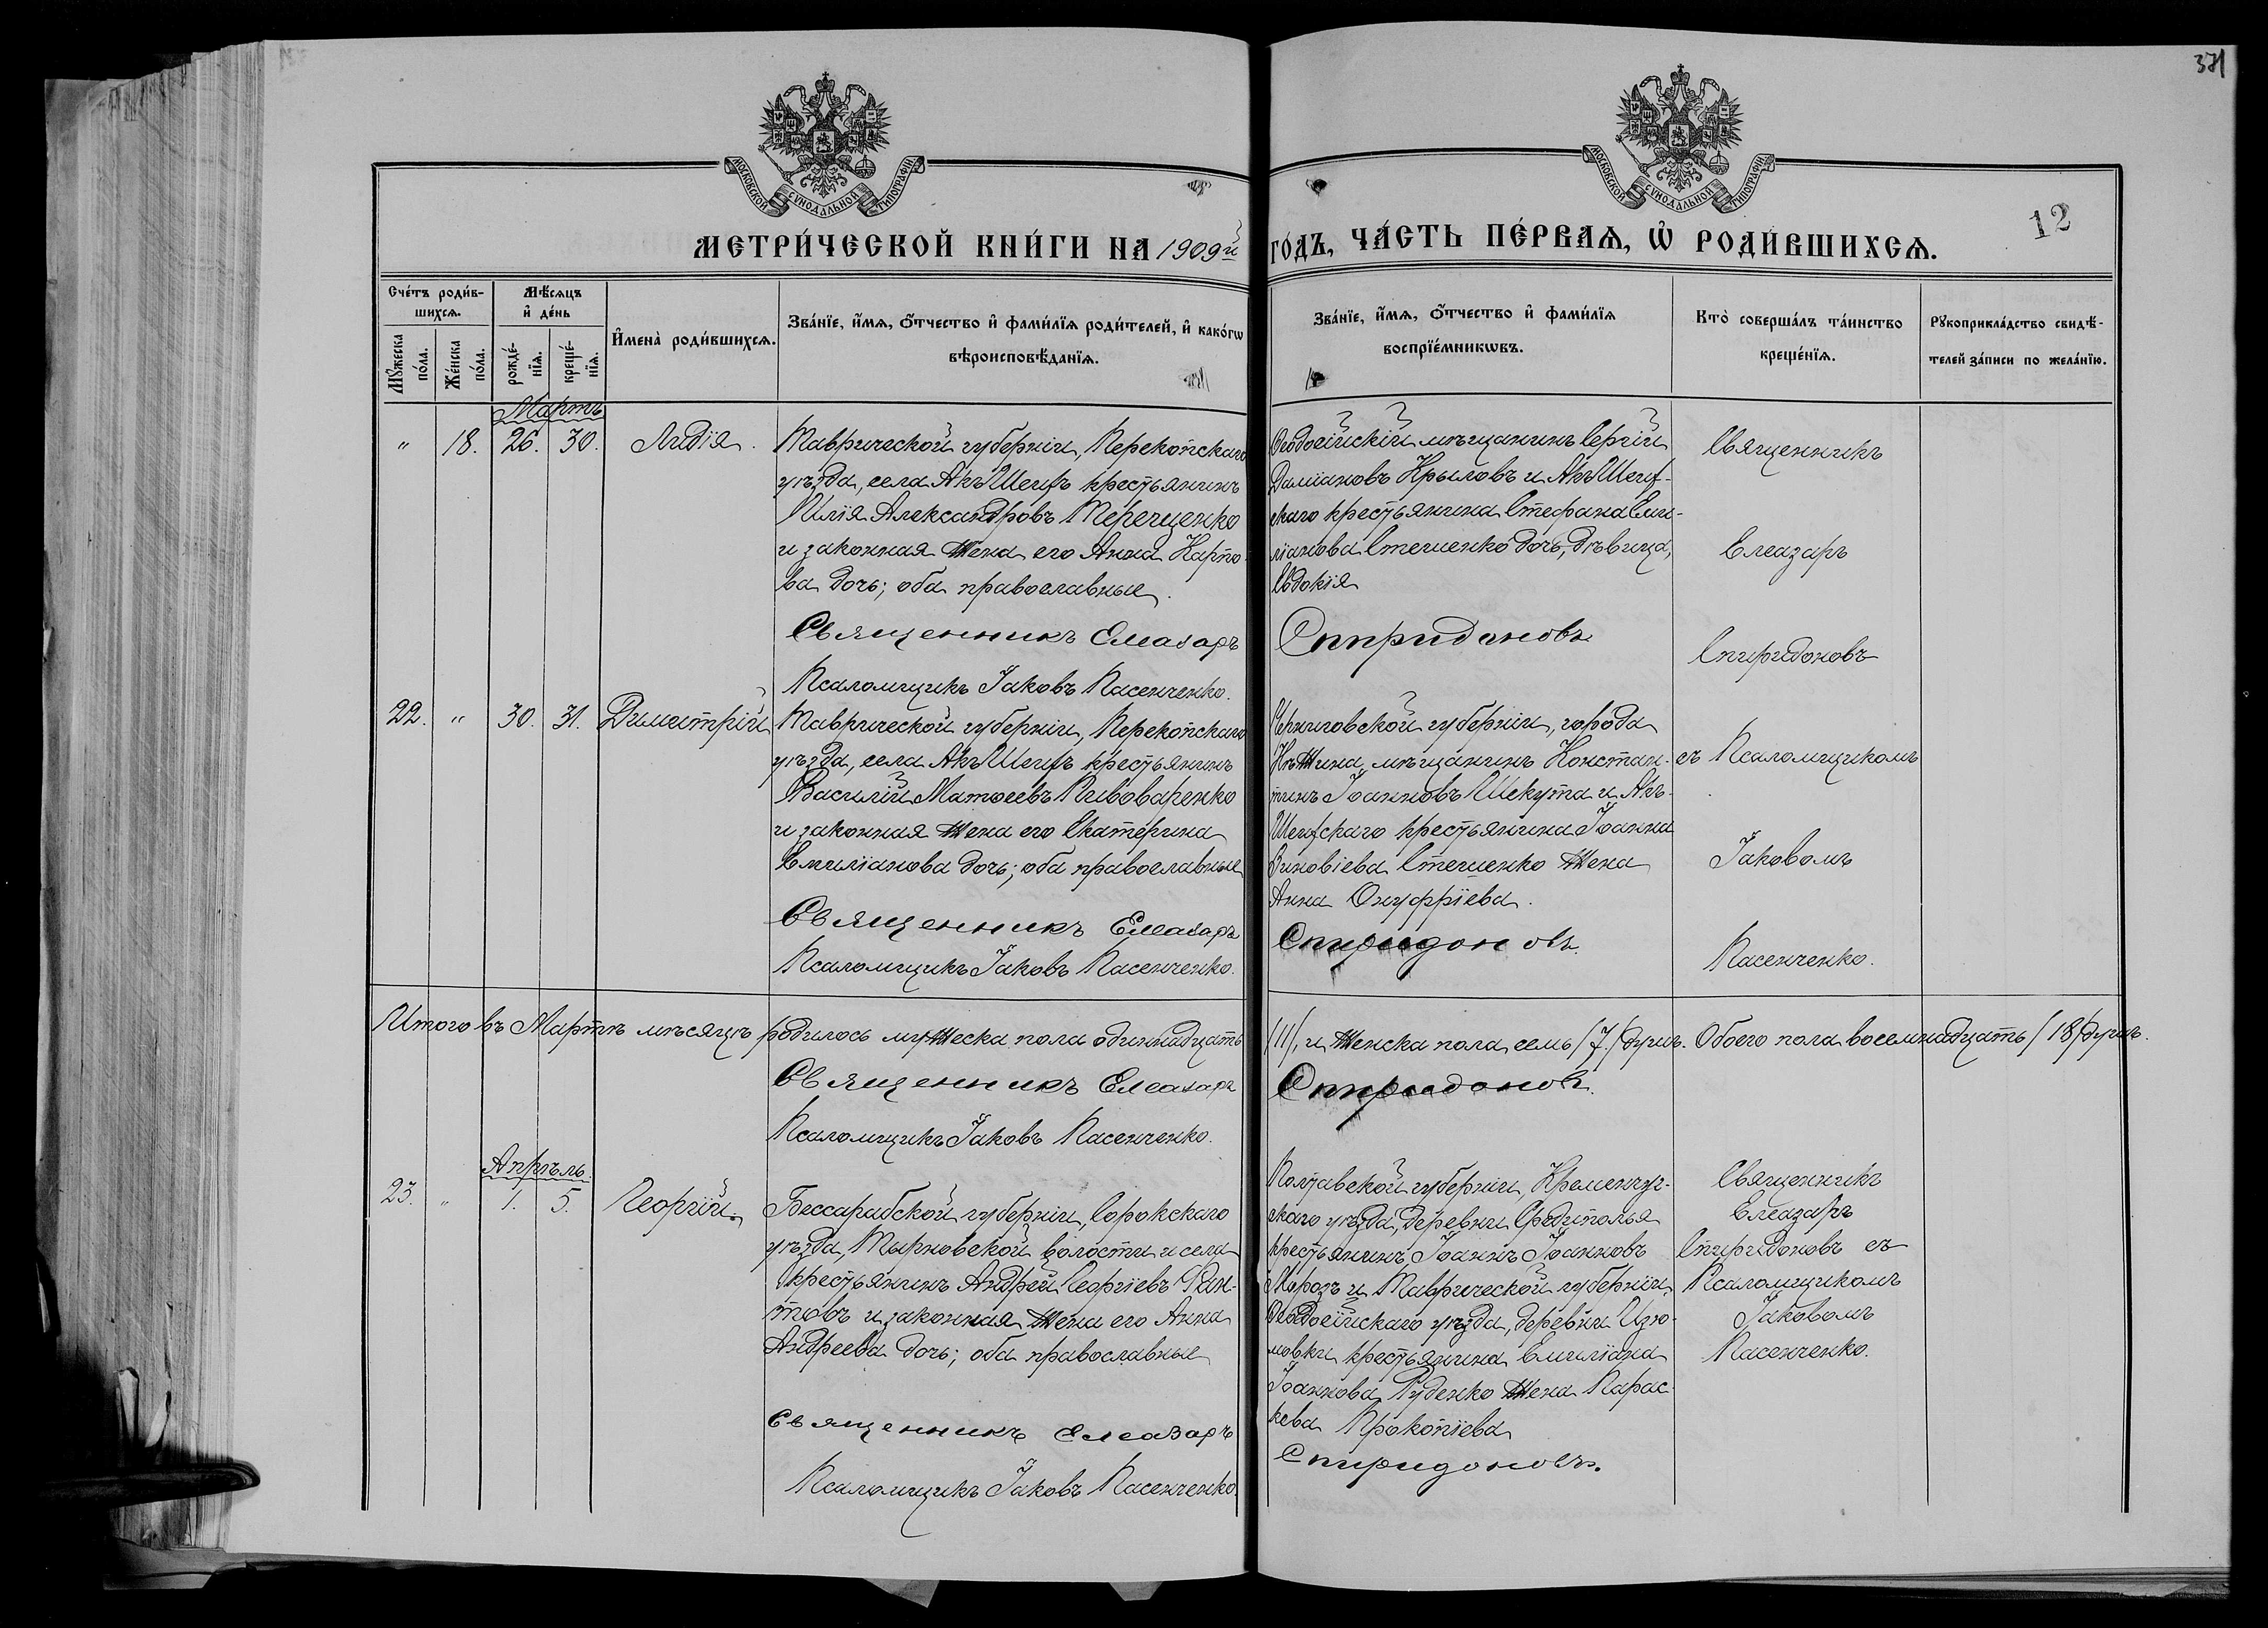 371
МОСКОВСКОЙ СѴНОДАЛЬНОЙ ТИПОГРАФІИ
МОСКОВСКОЙ СѴНОДАЛЬНОЙ ТИПОГРАФІИ
12
МЕТРИ́ЧЕСКОЙ КНИ́ГИ НА 1909й
ГО́ДЪ, ЧА́СТЬ ПЕ́РВАѦ, Ѡ҆ РОДИ́ВШИХСѦ.
Сче́тъ роди́в-
шихсѧ.
Мѣ́сѧцъ
и҆ де́нь
Мꙋ́жеска
по́ла.
Же́нска
по́ла.
рожде́-
нїѧ.
креще́-
нїѧ.
И҆мена̀ роди́вшихсѧ.
Зва́нїе, и҆́мѧ, ѻ҆́тчество и҆ фами́лїѧ роди́телей, и҆ како́гѡ
вѣроисповѣ́данїѧ.
Зва́нїе, и҆́мѧ, ѻ҆́тчество и҆ фами́лїѧ
воспрїе́мникѡвъ.
Кто̀ соверша́лъ та́инство
креще́нїѧ.
Рꙋкоприкла́дство свидѣ́-
телей за́писи по жела́нїю.
Мартъ
" 18. 26. 30. Лидія.
Таврической губерніи, Перекопскаго
уѣзда, села Акъ Шеихъ крестьянинъ
Илія Александровъ Терещенко
и законная жена его Анна Карпо-
ва дочь; оба православные.
Священникъ Елеазаръ
Псаломщикъ Іаковъ Пасенченко.
Ѳеодосійскій мѣщанинъ Сергій
Даміановъ Крыловъ и Акъ Шеих-
скаго крестьянина Стефана Еми-
ліанова Стешенко дочь, дѣвица,
Евдокія
Спиридоновъ
Священникъ
Елеазаръ
Спиридоновъ
съ Псаломщикомъ
Іаковомъ
Пасенченко.
22. " 30. 31. Димитрій
Таврической губерніи, Перекопскаго
уѣзда, села Акъ Шеихъ крестьянинъ
Василій Матѳеевъ Пивоваренко
и законная жена его Екатерина
Емиліанова дочь; оба православные
Священникъ Елеазаръ
Псаломщикъ Іаковъ Пасенченко.
Черниговской губерніи, города
Нѣжина, мѣщанинъ Констан-
тинъ Іоанновъ Шекута и Акъ-
Шеихскаго крестьянина Іоанна
Зиновіева Стешенко жена
Анна Онуфріева.
Спиридоновъ.
Итого въ Мартѣ мѣсяцѣ родилось мужеска пола одиннадцать
/11/, и женска пола семь /7/ душъ. Обоего пола восемнадцать /18/ душъ.
Священникъ Елеазаръ
Спиридоновъ.
Псаломщикъ Іаковъ Пасенченко.
Апрѣль.
23. " 1. 5. Георгій.
Бессарабской губерніи, Сорокскаго
уѣзда, Тырновской волости и села
крестьянинъ Андрей Георгіевъ
и законная жена его Анна
Андреева дочь; оба православные
Священникъ Елеазаръ
Псаломщикъ Іаковъ Пасенченко.
Полтавской губерніи, Кременчуг-
скаго уѣзда, деревни
крестьянинъ Іоаннъ Іоанновъ
Морозъ и Таврической губерніи
Ѳеодосійскаго уѣзда, деревни Изю-
мовки крестьянина Емиліана
Іоаннова Руденко жена Парас-
кева Прокопіева
Спиридоновъ.
Священникъ
Елеазаръ
Спиридоновъ съ
Псаломщикомъ
Іаковомъ
Пасенченко.